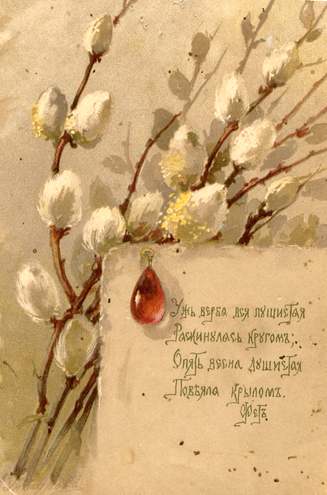 Ужъ верба вся пушистая
Раскинулась кругомъ;
Опять весна душистая
Повѣяла крыломъ.
Фетъ.